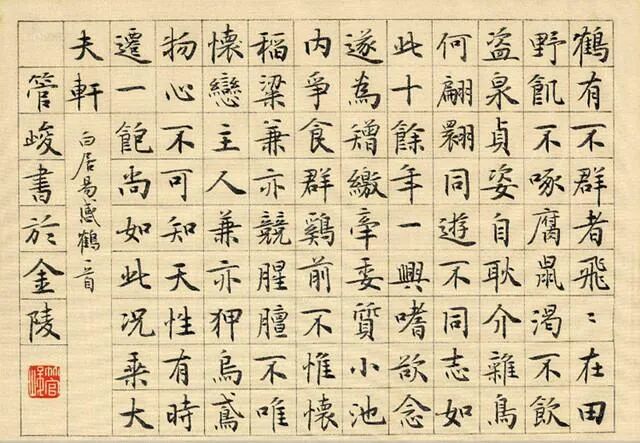 鶴有不群者飛〻在田
野飢不啄腐鼠渴不飲
盜泉貞姿自耿介雜鳥
何翩翾同遊不同志如
此十餘年一興嗜欲念
遂為矰繳牽委質小池
內爭食群鷄前不惟懷
稻粱兼亦競腥膻不唯
懷戀主人兼亦狎烏鳶
物心不可知天性有時
遷一飽尚如此況乘大
夫軒 白居易感鶴一首
管峻書於金陵
管峻